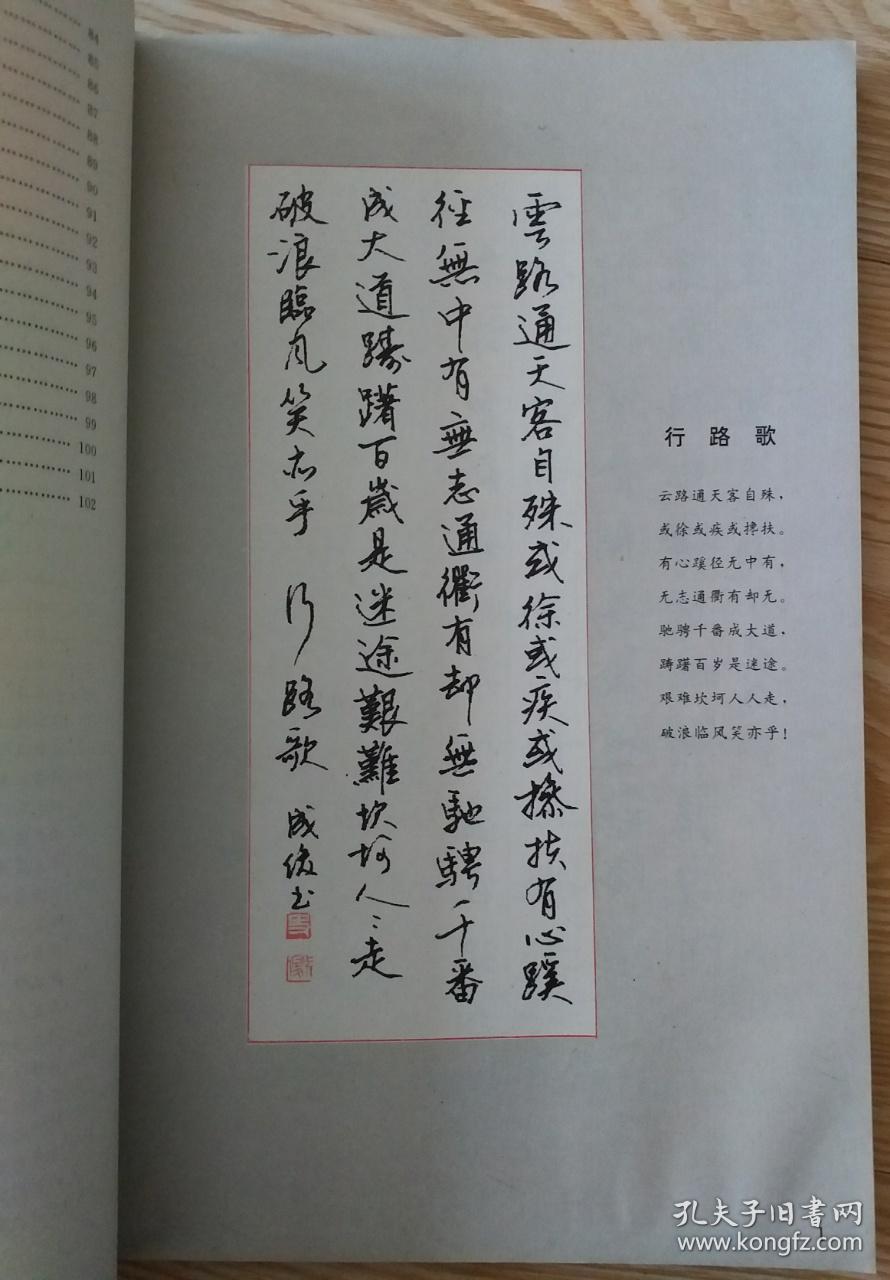 84
85
86
87
88
89
90
91
92
93
94
95
96
97
98
99
100
101
102
雲路通天客自殊或徐或疾或搀扶有心蹊
徑無中有無志通衢有却無馳騁千番
成大道躊躇百歲是迷途艱難坎坷人々走
破浪臨風笑亦乎 行路歌 成俊书
行路歌
云路通天客自殊，
或徐或疾或搀扶。
有心蹊径无中有，
无志通衢有却无。
驰骋千番成大道，
踌躇百岁是迷途。
艰难坎坷人人走，
破浪临风笑亦乎！
1
孔夫子旧书网
www.kongfz.com